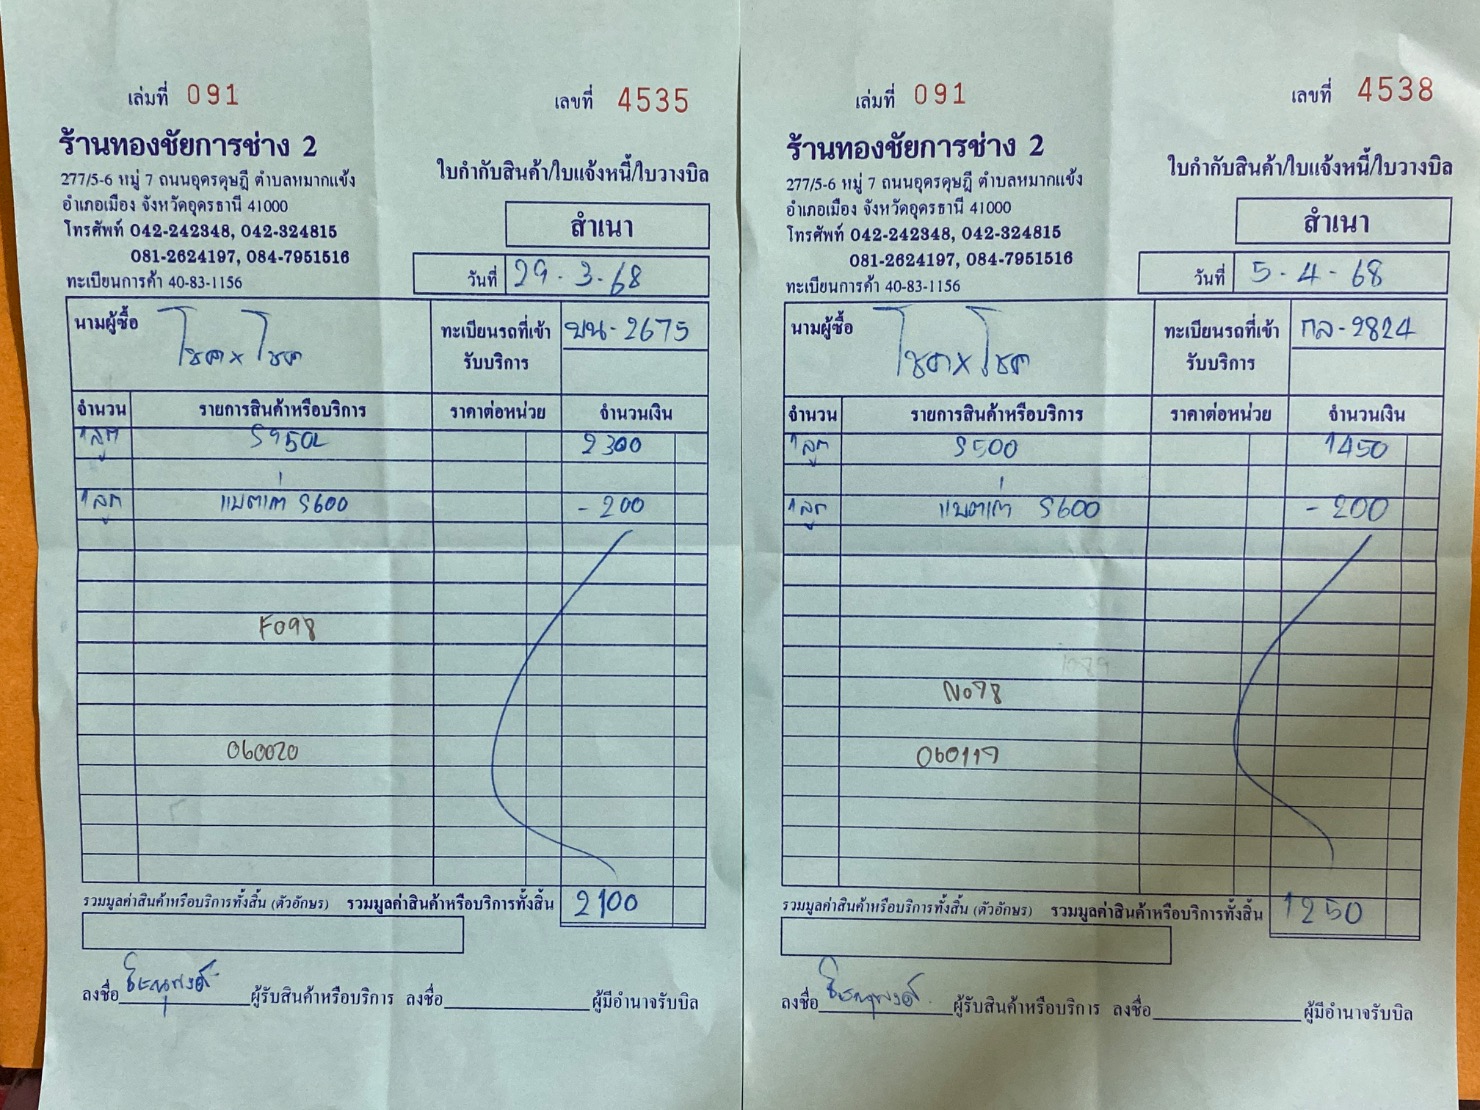 เล่มที่ 091
เลขที่ 4535
ร้านทองชัยการช่าง 2
277/5-6 หมู่ 7 ถนนอุดรดุษฎี ตำบลหมากแข้ง
อำเภอเมือง จังหวัดอุดรธานี 41000
โทรศัพท์ 042-242348, 042-324815
081-2624197, 084-7951516
ทะเบียนการค้า 40-83-1156
ใบกำกับสินค้า/ใบแจ้งหนี้/ใบวางบิล
สำเนา
วันที่ 29-3-68
นามผู้ซื้อ โชค x โชค
ทะเบียนรถที่เข้า บน-2675
รับบริการ
จำนวน รายการสินค้าหรือบริการ ราคาต่อหน่วย จำนวนเงิน
1ลูก S95DL 2300
1ลูก แบตเก่า S600 -200
F098
060020
รวมมูลค่าสินค้าหรือบริการทั้งสิ้น (ตัวอักษร) รวมมูลค่าสินค้าหรือบริการทั้งสิ้น 2100
ลงชื่อ ผู้รับสินค้าหรือบริการ ลงชื่อ ผู้มีอำนาจรับบิล
เล่มที่ 091
เลขที่ 4538
ร้านทองชัยการช่าง 2
277/5-6 หมู่ 7 ถนนอุดรดุษฎี ตำบลหมากแข้ง
อำเภอเมือง จังหวัดอุดรธานี 41000
โทรศัพท์ 042-242348, 042-324815
081-2624197, 084-7951516
ทะเบียนการค้า 40-83-1156
ใบกำกับสินค้า/ใบแจ้งหนี้/ใบวางบิล
สำเนา
วันที่ 5-4-68
นามผู้ซื้อ โชค x โชค
ทะเบียนรถที่เข้า กล-9824
รับบริการ
จำนวน รายการสินค้าหรือบริการ ราคาต่อหน่วย จำนวนเงิน
1ลูก S500 1450
1ลูก แบตเก่า S600 -200
N098
060119
รวมมูลค่าสินค้าหรือบริการทั้งสิ้น (ตัวอักษร) รวมมูลค่าสินค้าหรือบริการทั้งสิ้น 1250
ลงชื่อ ผู้รับสินค้าหรือบริการ ลงชื่อ ผู้มีอำนาจรับบิล